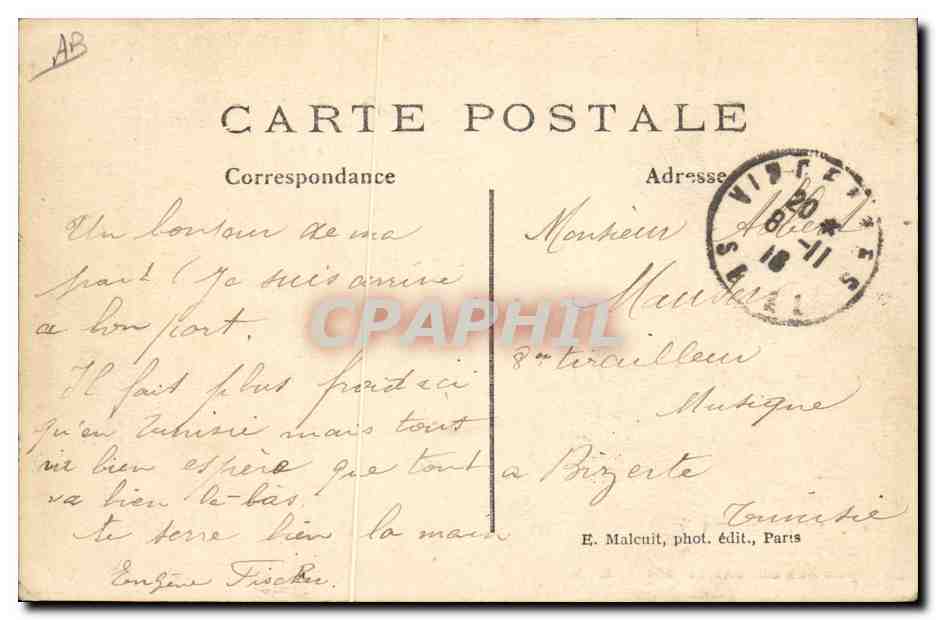 AB
CARTE POSTALE
Correspondance
Adresse
Un bonjour de ma
part! Je suis arrivé
a bon port.
Il fait plus froid ici
qu'en Tunisie mais tout
va bien espère que tout
va bien là-bas.
te serre bien la main
Eugène Fischer.
Monsieur Albert
8me tirailleur
Musique
a Bizerte
Tunisie
VINCENNES
20
8 -11
18
E. Malcuit, phot. édit., Paris
CPAPHIL